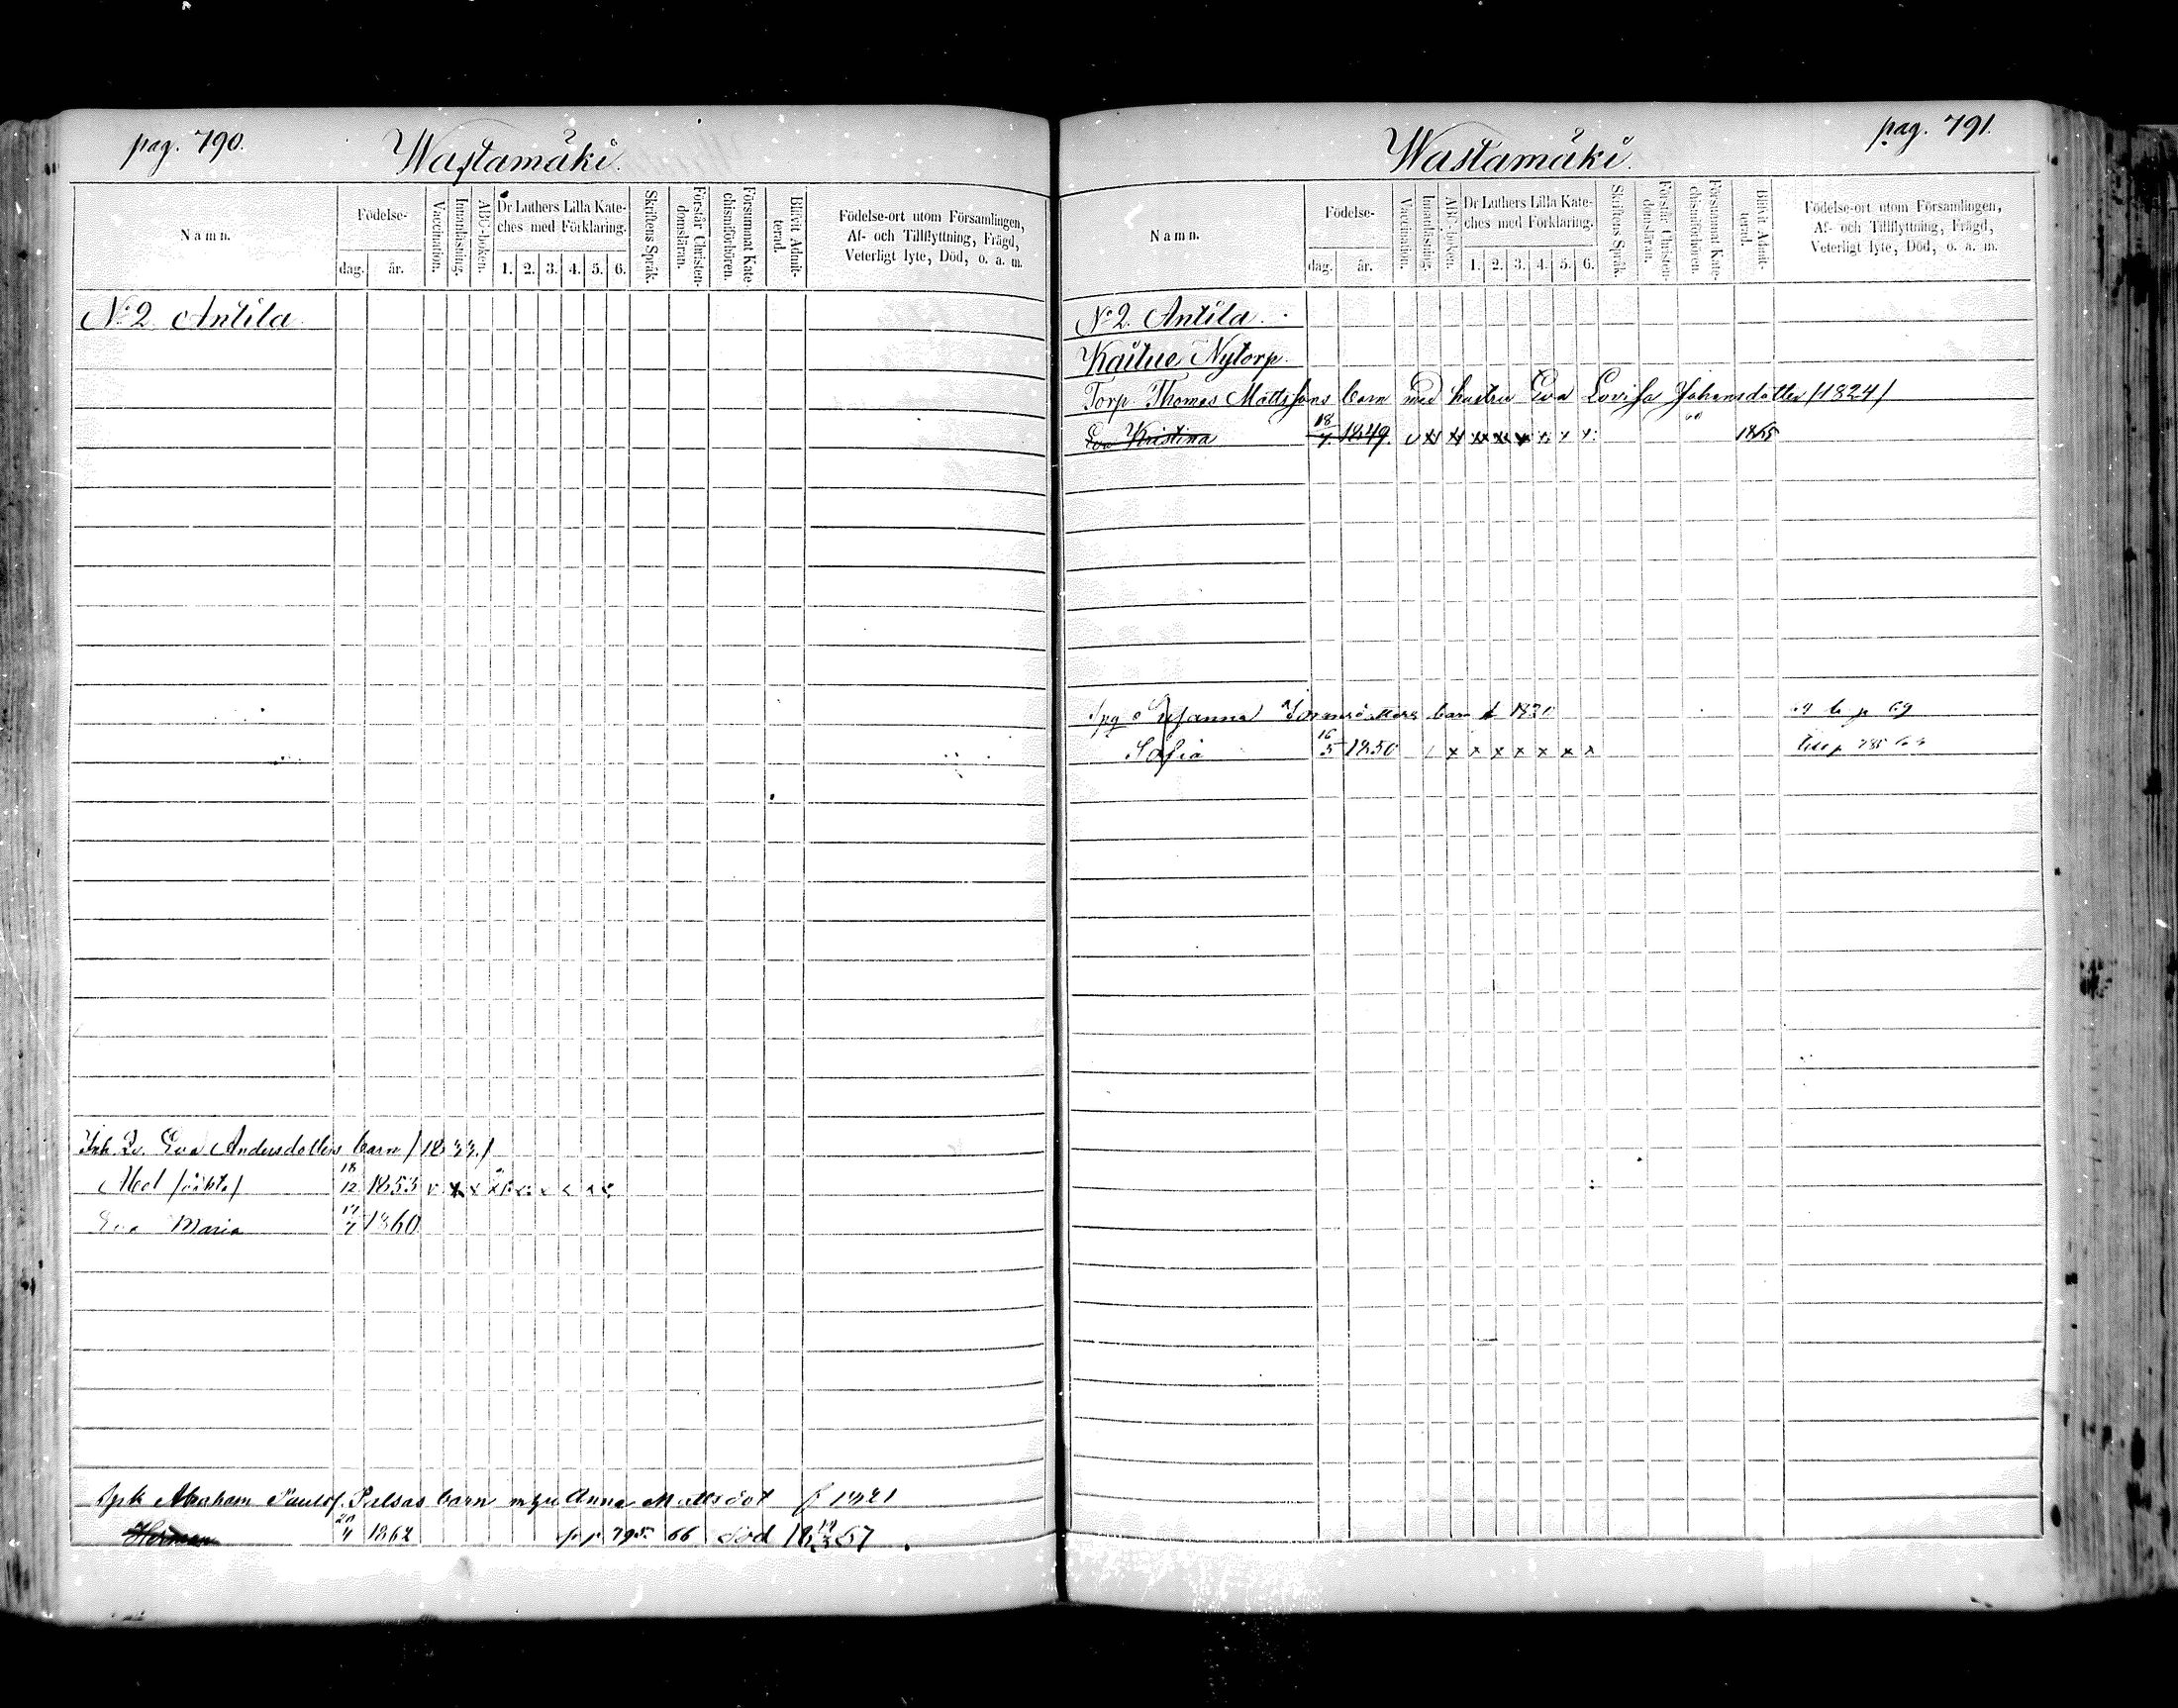 pag. 790.
Wastamäki.
Namn.
Födelse-
dag. år.
Vaccination.
Innanläsning.
ABC-boken.
Dr Luthers Lilla Kate-
ches med Förklaring.
1. 2. 3. 4. 5. 6.
Skriftens Språk.
Förstår Christen-
domsläran.
Försummat Kate-
chismiförhören.
Blifvit Admit-
terad.
Födelse-ort utom Församlingen,
Af- och Tillflyttning, Frägd,
Veterligt lyte, Död, o. a. m.
No 2. Antila.
Eva Andersdotters barn
Abel 18/12 1853 v x x x x x x x x
Eva Maria 17/7 1860
Abraham Paulss. Pulsas barn Anna Mattsdot f 1821
Herman 20/4 1862 795 66 död 18 67
pag. 791.
Wastamäki.
Namn.
Födelse-
dag. år.
Vaccination.
Innanläsning.
ABC-boken.
Dr Luthers Lilla Kate-
ches med Förklaring.
1. 2. 3. 4. 5. 6.
Skriftens Språk.
Förstår Christen-
domsläran.
Försummat Kate-
chismiförhören.
Blifvit Admit-
terad.
Födelse-ort utom Församlingen,
Af- och Tillflyttning, Frägd,
Veterligt lyte, Död, o. a. m.
No 2. Antila.
Kaitue Nytorp.
Torp. Thomas Mattssons barn med hustru Eva Lovisa Johansdotter /1824/
Eva Kristina 18/7 1849. v x x x x x x x x 1865
Susanna barn f
Sofia 16/5 1850 x x x x x x x